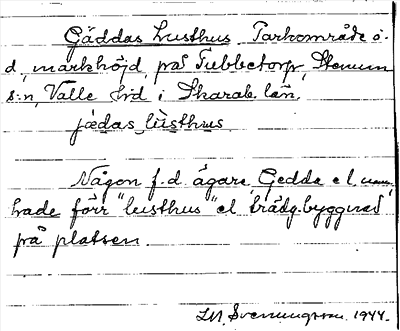 Gäddas Lusthus, Parkområde o.
d, markhöjd, på Tubbetorp, Stenum
s:n, Valle hrd i Skarab. län.
jædas lùsthus
Någon f.d. ägare, Gedda el.
hade förr "lusthus" el. trädg.byggnad
på platsen.
Svenungsson. 1944.